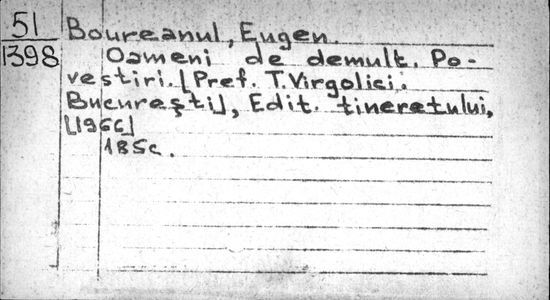 51
1398
Boureanul, Eugen.
Oameni de demult. Po-
vestiri. [Pref. T. Virgolici.
București], Edit. tineretului,
[1966]
185c.